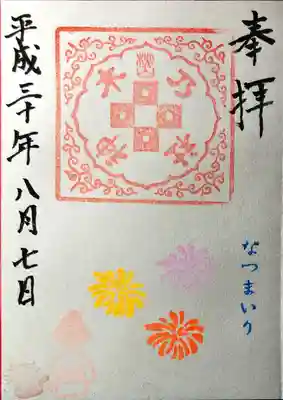 奉拝
なつまいり
平成三十年八月七日